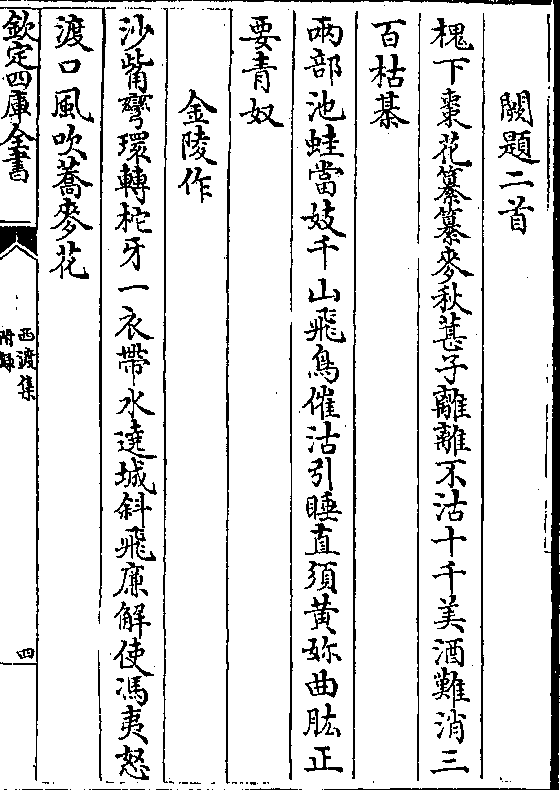 闕題二首
槐下棗花纂纂麥秋葚子離離不沽十千美酒難消三
百枯棊
兩部池蛙當妓千山飛鳥催沽引睡直須黃妳曲肱正
要青奴
金陵作
沙觜彎環轉柁牙一衣帶水達城斜飛廉解使馮夷怒
渡口風吹蕎麥花
欽定四庫全書
西渡集
附錄
四